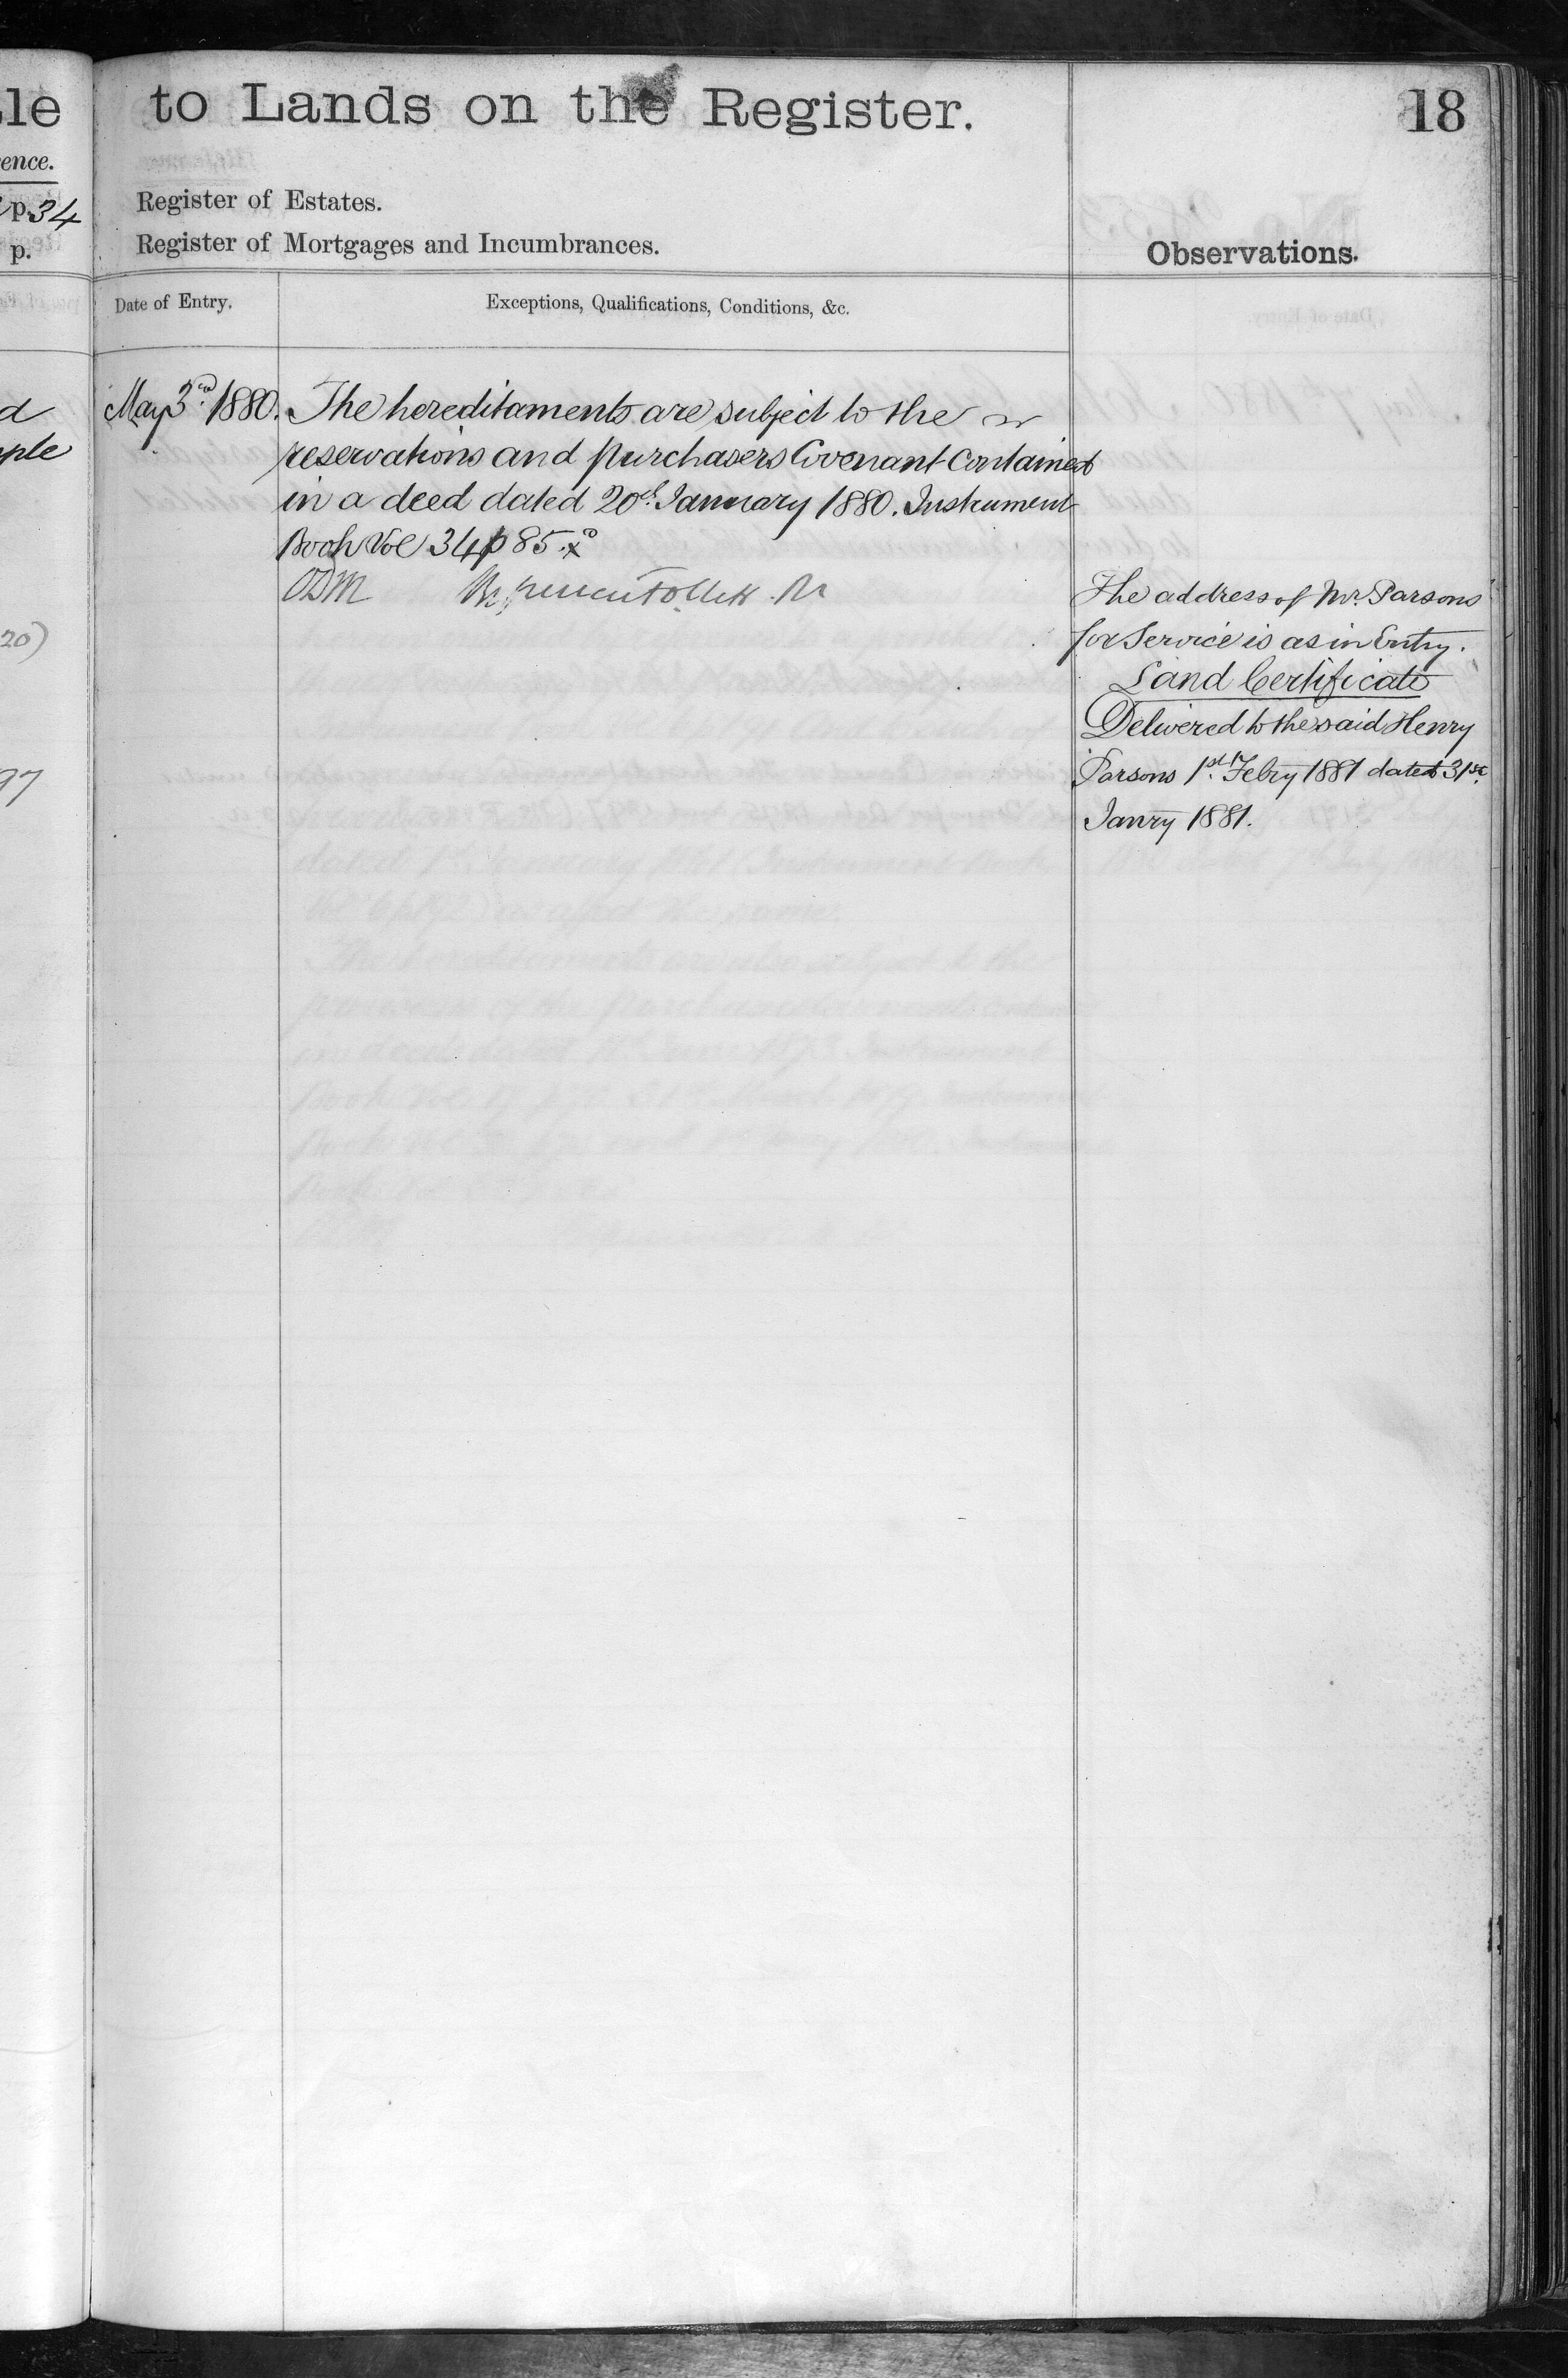 le
ence.
p. 34
p.
d
ple
20)
97
to Lands on the Register.
18
Register of Estates.
Register of Mortgages and Incumbrances.
Observations.
Date of Entry.
Exceptions, Qualifications, Conditions, &c.
May 3rd 1880.
The hereditaments are subject to the
reservations and purchasers Covenant contained
in a deed dated 20th January 1880. Instrument
Book Vol 34 p 85.
The address of Mr. Parsons
for Service is as in Entry.
Land Certificate
Delivered to the said Henry
Parsons 1st Febry 1881 dated 31st
Janry 1881.